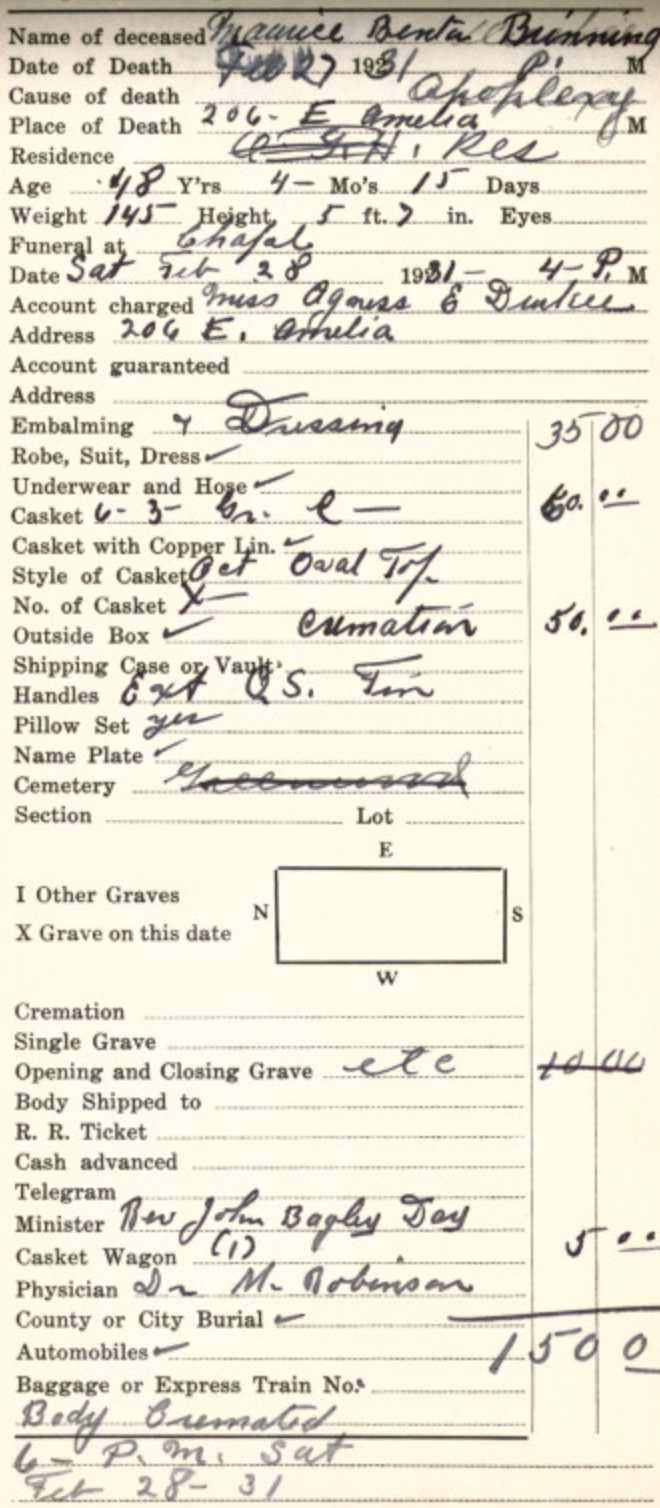 Name of deceased Maurice Benta Brunning
Date of Death Feb 27 1931 P. M
Cause of death Apoplexy
Place of Death 206 - E Amelia M
Residence Res
Age 48 Y'rs 4 - Mo's 15 Days
Weight 145 Height 5 ft. 7 in. Eyes
Funeral at Chapal
Date Sat Feb 28 1931 - 4 - P. M
Account charged Miss Agness E
Address 206 E. Amelia
Account guaranteed
Address
Embalming & Dressing 35 00
Robe, Suit, Dress ✓
Underwear and Hose ✓
Casket 6 - 3 - Gr. C — 60. 00
Casket with Copper Lin. ✓
Style of Casket Oct Oval Top
No. of Casket X
Outside Box ✓ Cremation 50. 00
Shipping Case or Vault
Handles Ext Q S. Tin
Pillow Set yes
Name Plate ✓
Cemetery Greenwood
Section Lot
E
I Other Graves
N S
X Grave on this date
W
Cremation
Single Grave
Opening and Closing Grave etc 10 00
Body Shipped to
R. R. Ticket
Cash advanced
Telegram
Minister Rev John Bagley Day
Casket Wagon (1) 5 00
Physician Dr M. Robinson
County or City Burial ✓
Automobiles ✓ 150 0
Baggage or Express Train No.
Body Cremated
6 - P. M. Sat
Feb 28 - 31